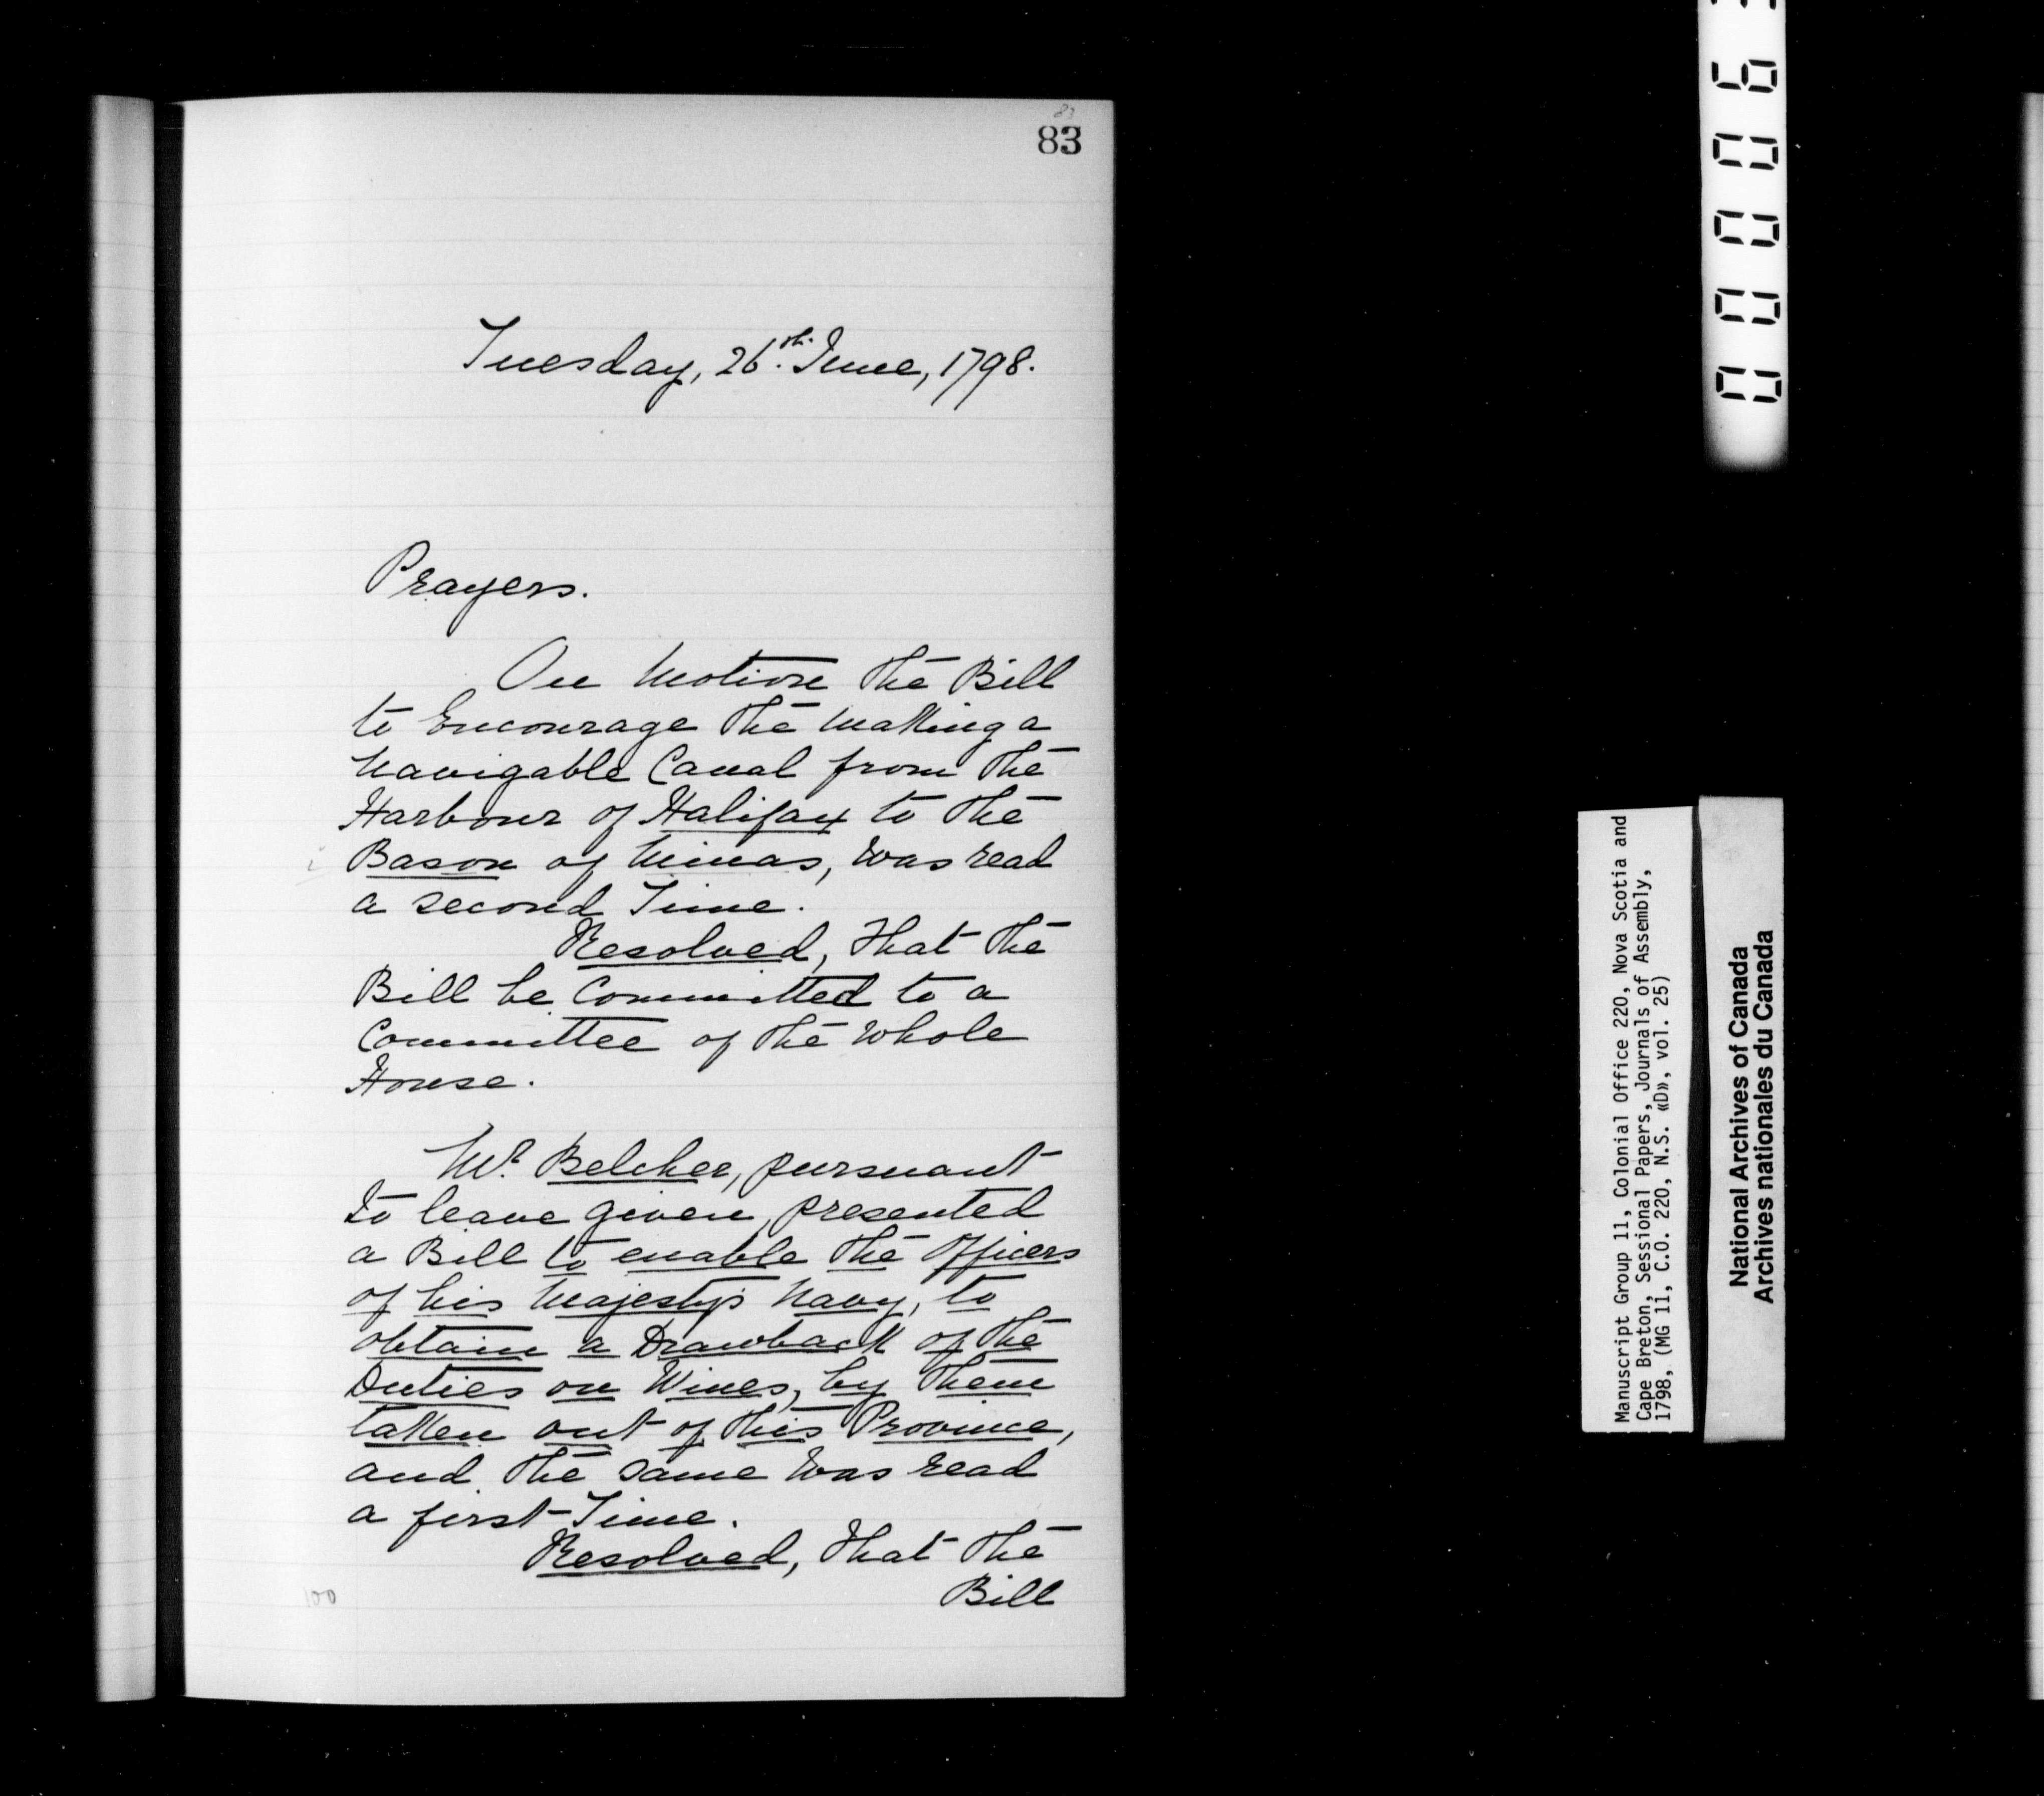 83
83
Tuesday, 26th. June, 1798.
Prayers.
On Motion the Bill
to Encourage the Making a
Navigable Canal from the
Harbour of Halifax to the
Bason of Minas, was read
a second Time.
Resolved, that the
Bill be Committed to a
Committee of the Whole
House.
Mr. Belcher, pursuant
to leave given, presented
a Bill to enable the Officers
of his Majesty's Navy, to
obtain a Drawback of the
Duties on Wines, by them
taken out of this Province,
and the same was read
a first Time.
Resolved, that the
Bill
100
Manuscript Group 11, Colonial Office 220, Nova Scotia and
Cape Breton, Sessional Papers, Journals of Assembly,
1798, (MG 11, C.O. 220, N.S. «D», vol. 25)
National Archives of Canada
Archives nationales du Canada